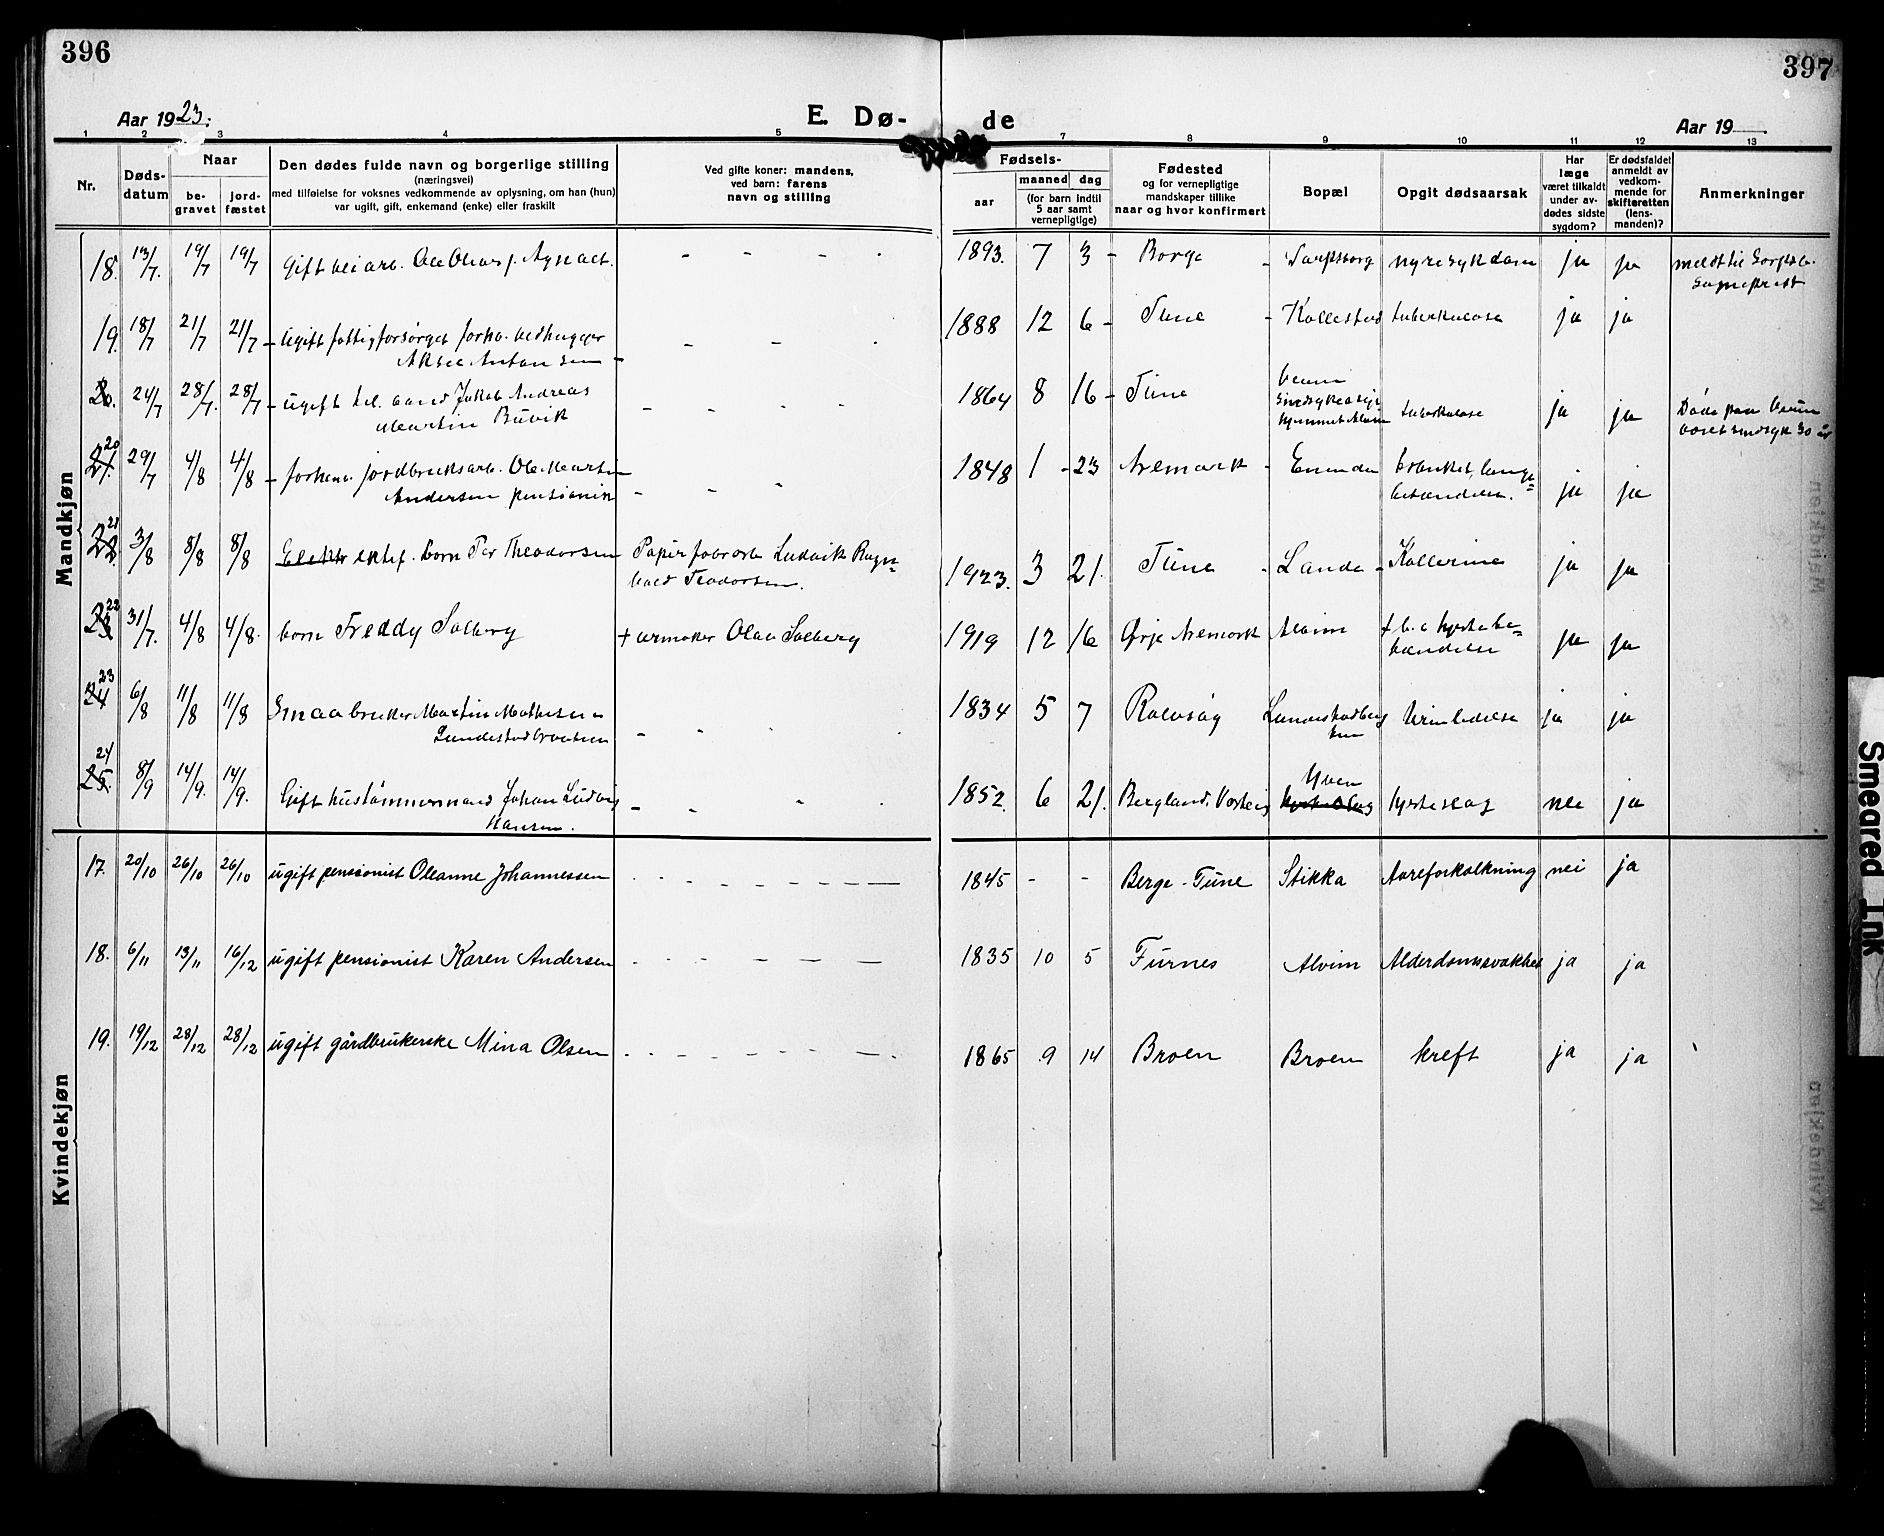 396
397
Aar 1923.
E. Dø-
de
Aar 19
1 2 3 4 5 7 8 9 10 11 12 13
Nr.
Døds-
datum
Naar
be-
gravet
jord-
fæstet
Den dødes fulde navn og borgerlige stilling
(næringsvei)
med tilføielse for voksnes vedkommende av oplysning, om han (hun)
var ugift, gift, enkemand (enke) eller fraskilt
Ved gifte koner: mandens,
ved barn: farens
navn og stilling
Fødsels-
aar
maaned
dag
(for barn indtil
5 aar samt
vernepligtige)
Fødested
og for vernepligtige
mandskaper tillike
naar og hvor konfirmert
Bopæl
Opgit dødsaarsak
Har
læge
været tilkaldt
under av-
dødes sidste
sygdom?
Er dødsfaldet
anmeldt av
vedkom-
mende for
skifteretten
(lens-
manden)?
Anmerkninger
Mandkjøn
18. 13/7. 19/7 19/7 Gift 1893. 7 3 - Borge - Sarpsborg nyresykdom ja ja meldt til Sarpsb.
Sogneprest
19. 18/7 21/7 21/7 - Ugift fattigforsørget forhv. vedhugger 1888 12 6 - Tune - Kollestad tuberkulose ja ja
Aksel Antonsen -
20. 24/7 28/7. 28/7 - ugift Jakob Andreas
Martin Buvik
1864 8 16 - Tune
Sindsykeasyl
hjemmet Alvim
tuberkulose ja ja Døde paa
været sindsyk 30 år
20 21. 29/7 4/8 4/8 - forhenv. jordbruksarb. Ole Martin
Andersen pensionist
1848 1 - 23 Aremark - Enenda ja ja
21 22. 3/8 8/8 8/8 ektef. barn Per Theodorsen Papirfabrarb Ludvik Ragn=
vald Teodorsen.
1923. 3 21. Tune - Lande - Kollerine ja ja
22 23 31/7. 4/8 4/8. barn Freddy Solberg + urmaker Olav Solberg 1919 12 16 Ørje Aremark Alvim ja ja
23 24 6/8 11/8 11/8 Smaabruker Martin Mathisen
Lundestadbraaten
1834 5 7 Rolvsøy Urinlidelse ja ja
24 25. 8/9 14/9. 14/9. Gift hustømmermand Johan Ludvig
Hansen.
1852. 6 21. Bergland, Varteig Yven hjerteslag nei ja
Kvindekjøn
17. 20/10 26/10 26/10 ugift pensionist Oleanne Johannessen 1845 - - Berge - Tune Stikka Aareforkalkning nei ja
18. 6/11 13/11 16/12 ugift pensionist Karen Andersen 1835 10 5 Furnes Alvim Alderdomssvakhet ja ja
19. 19/12 28/12 28/12 ugift gårdbrukerske Mina Olsen 1865 9 14 Broen Broen kreft ja ja
Smeared Ink